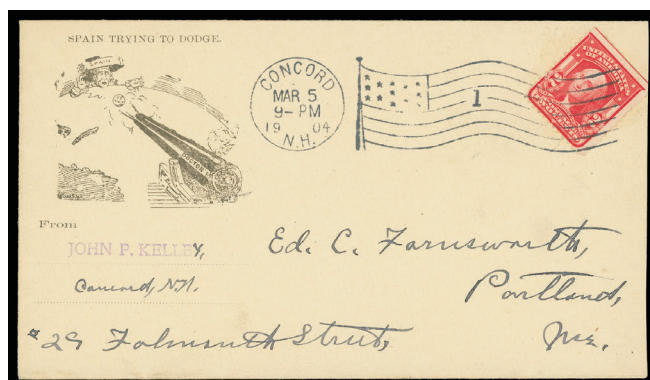 SPAIN TRYING TO DODGE.
SPAIN
CONCORD
MAR 5
9-PM
19 04
N.H.
1
UNITED STATES
OF AMERICA
From
JOHN P. KELLEY,
Concord, N.H.
Ed. C. Farnsworth,
Portland,
Me.
#29 Falmouth Street,